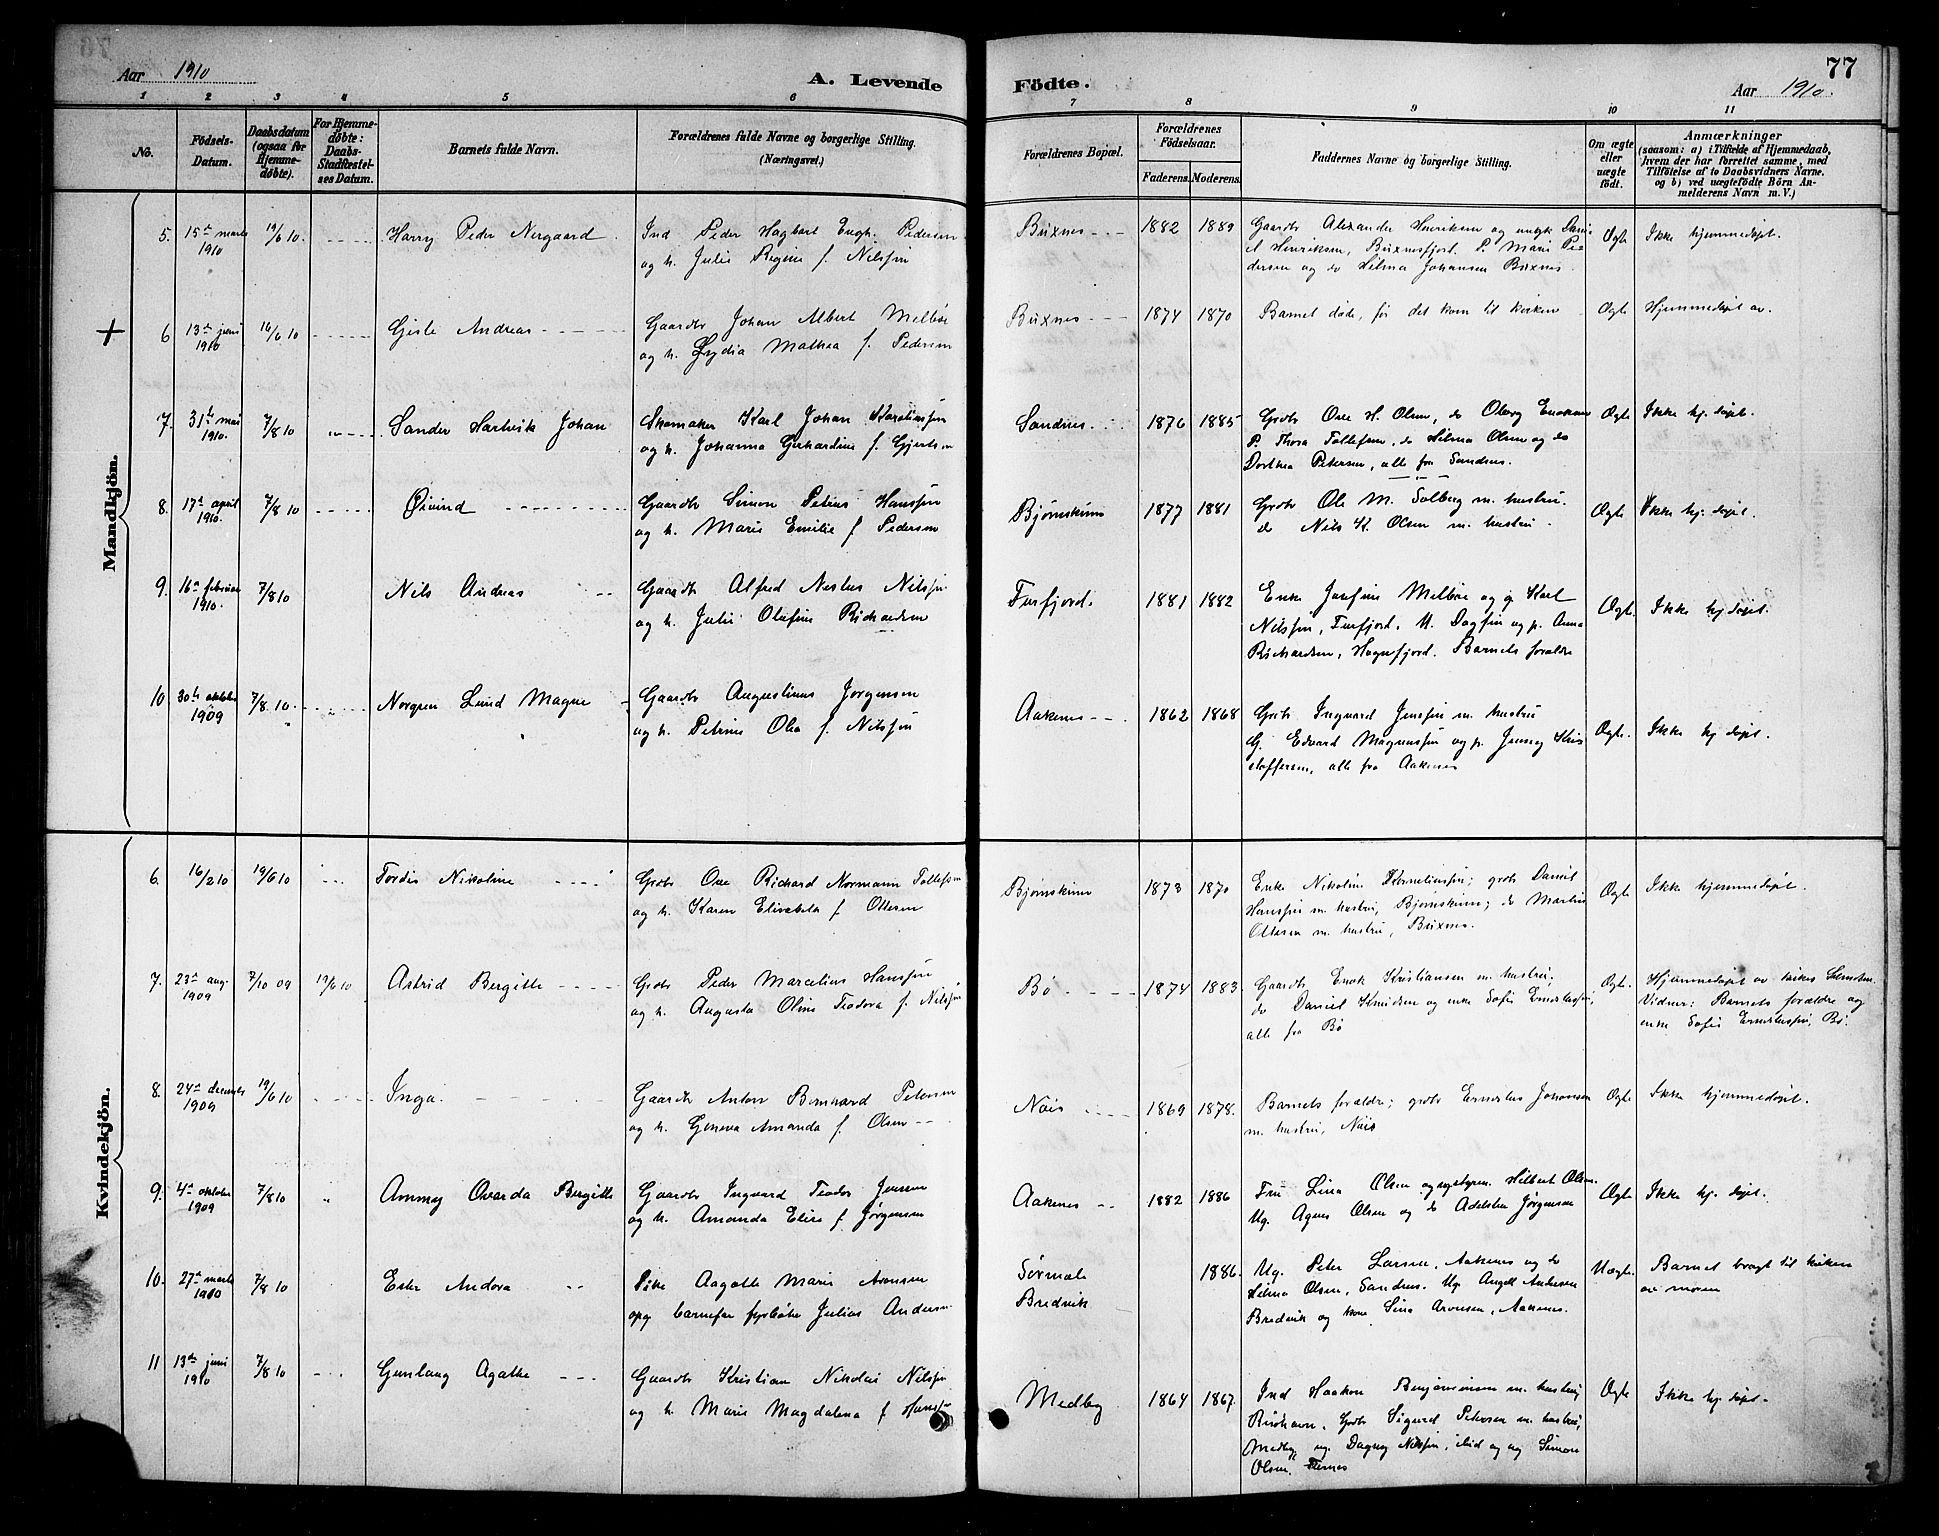 Aar 1910
A. Levende
Födte.
Aar 1910.
77
1 2 3 4 5 6 7 8 9 10 11
No.
Födsels-
Datum.
Daabsdatum
(ogsaa for
Hjemme-
döbte).
For Hjemme-
döbte:
Daabs-
Stadfæstel-
ses Datum.
Barnets fulde Navn.
Forældrenes fulde Navne og borgerlige Stilling.
(Næringsvei.)
Forældrenes Bopæl.
Forældrenes
Födselsaar.
Faderens. Moderens.
Faddernes Navne og borgerlige Stilling.
Om ægte
eller
uægte
födt.
Anmærkninger
(saasom: a) i Tilfælde af Hjemmedaab,
hvem der har forrettet samme, med
Tilföielse af to Daabsvidners Navne.
og b) ved uægtefödte Börn An-
melderens Navn m. V.)
Mandkjön.
5. 15de marts 1910 19/6 10 Harry Peder Nergaard
Ind Peder Hagbart Engh. Pedersen
og h. Julie Regine f. Nilssen
Buxnes 1882 1889
Gaardb Alexander Henriksen og ungk Dani-
el Henriksen, Buxnesfjord. P. Marie Pe-
dersen og do Hilma Johansen Buxnes.
Ægte Ikke hjemmedøpt.
+ 6 13de juni 1910 16/6 10 Gisle Andreas
Gaardb Johan Albert Melbøe
og h. Lydia Mathea f. Pedersen
Buxnes 1874 1870
Barnet døde, før det kom til kirken
Ægte Hjemmedøpt av.
7. 31te mai 1910. 7/8 10 Sander Hartvik Johan
Skomaker Karl Johan Karolinssen
og h. Johanna Gerhardine f. Gjertsen
Sandnes 1876 1885
Grdb Ole H. Olsen, do Oluf Eriksen
P. Thora Tollefsen, do Hilma Olsen og do
Dorthea Petersen, alle fra Sandnes.
Ægte Ikke hj. døpt.
8. 17de april 1910. 7/8 10 Øivind
Gaardb Simon Petrus Hanssen
og h. Marie Emilie f Pedersen
Bjørnskinn 1877 1881
Grdb Ole M. Solberg m. hustru.
do Nils K. Olsen m. hustru.
Ægte Ikke hj. døpt.
9. 16de februar 1910. 7/8 10 Nils Andreas
Gaardb Alfred Nestus Nilssen
og h. Julie Olufine Richardsen
Furfjord. 1881 1882
Enke Josefine Melbøe og g Karl
Nilssen, Furfjord. U. Dagfin og p. Anna
Richardsen, Hognfjord. Barnets forældre
Ægte. Ikke hj døpt.
10 30te oktober 1909 7/8 10. Norgren Lund Magne
Gaardb Augustinus Jørgensen
og h. Petrine Olea f. Nilssen
Aakenes 1862 1868
Grdb Ingvard Jenssen m. hustru
G. Edvard Magnussen og p. Jenny Kris
stoffersen, alle fra Aakenes
Ægte. Ikke hj døpt.
Kvindekjön.
6. 16/2 10 19/6 10 Tordis Nikoline
Grdb Ole Richard Normann Tollefsen
og h. Karen Elisabeta f Ottesen
Bjørnskinn 1873 1870
Enke Nikoline Korneliussen; grdb Daniel
Hanssen m. hustru, Bjørnskinn; do Martin
Ottesen m. hustru, Buxnes.
Ægte Ikke hjemmedøpt.
7. 23de aug. 1909 7/10 09 19/6 10 Astrid Bergitte
Grdb Peder Marcelius Hanssen
og h. Augusta Oline Teodora f. Nilssen
Bø 1874 1883
Gaardb Enok Kristiansen m. hustru;
do Daniel Knudsen og enke Sofie Ernestussen,
alle fra Bø
Ægte. Hjemmedøpt av
Vidner: Barnets forældre og
enke Sofie Ernestussen, Bø.
8. 24de decemb 1909 19/6 10 Inga
Gaardb Anton Bernhard Petersen
og h. Geneva Amanda f. Olsen
Nois 1869 1878.
Barnets forældre; grdb Ernestus Johansen
m. hustru, Nøis
Ægte Ikke hjemmedøpt.
9. 4de oktober 1909 7/8 10 Ammy Ovarda Bergitte
Gaardb Ingvard Teodor Jenssen
og h. Amanda Elise f. Jørgensen
Aakenes 1882 1886
Fru Lina Olsen og Hilbert Olsen.
Ug. Agnes Olsen og do Adelsten Jørgensen
Ægte Ikke hj. døpt.
10. 27de marts 1910 7/8 10 Ester Andora
Pike Aagatte Marie Aronsen
opg barnefar fyrbøter Julius Andersen
Sørmæle
Bredvik 1886.
Ug. Peter Larsen, Aakenes og do
Helma Olsen, Sandnes. Ug Angell Andersen
Bredvik og kone Lina Aronsen, Aakenes.
Uægte. Barnet bragt til kirken
av moren
11 13de juni 1910 7/8 10 Gunlaug Agathe
Gaardb Kristian Nikolai Nilssen
og h. Marie Magdalena f Hanssen
Medby 1864 1867.
Ind Haakon Benjaminsen m. hustru,
Risøhavn. Grdb Sigurd Petersen m. hustru,
Medby, ug. Dagny Nilssen, ibid og ug Simon
Olsen, Ternes
Ægte Ikke hj. døpt.